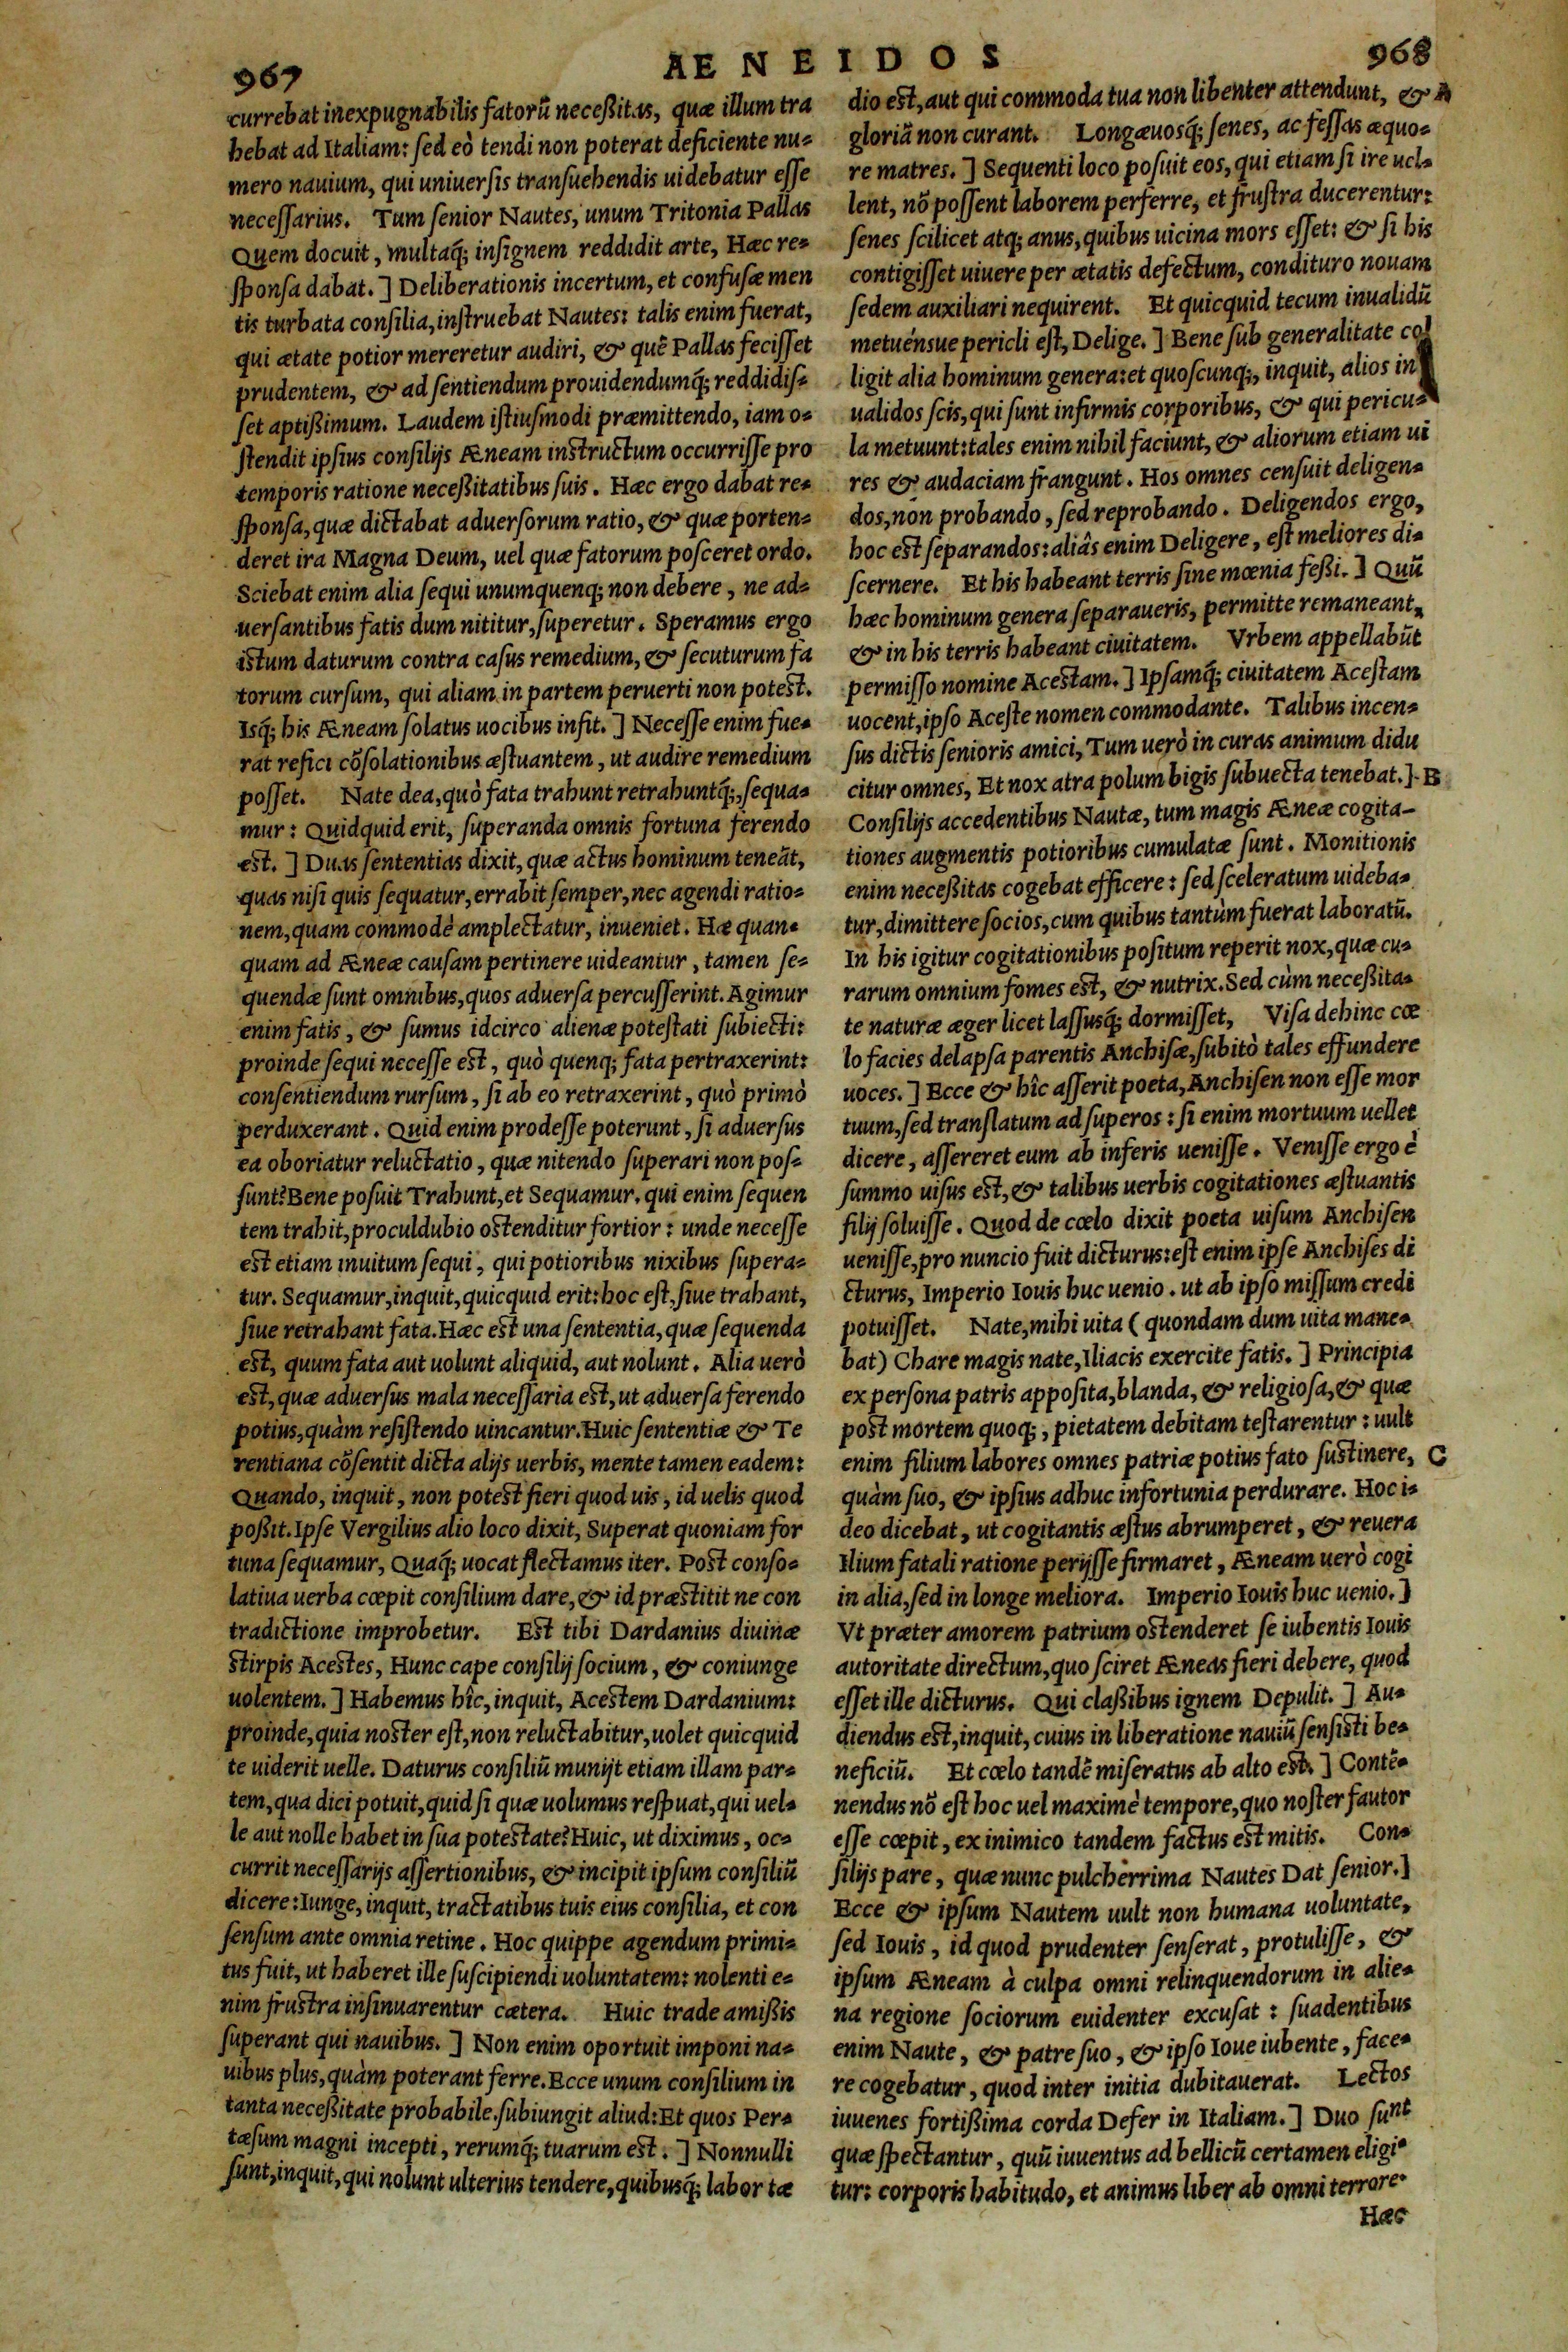 967
AENEIDOS
968
currebat inexpugnabilis fatorũ neceßitas, quæ illum tra
hebat ad Italiam: sed eò tendi non poterat deficiente nu-
mero nauium, qui uniuersis transuehendis uidebatur esse
necessarius. Tum senior Nautes, unum Tritonia Pallas
Quem docuit, multaq́; insignem reddidit arte, Hæc re-
sponsa dabat.] Deliberationis incertum, et confusæ men
tis turbata consilia, instruebat Nautes: talis enim fuerat,
qui ætate potior mereretur audiri, & quẽ Pallas fecisset
prudentem, & ad sentiendum prouidendumq́; reddidis-
set aptißimum. Laudem istiusmodi præmittendo, iam o-
stendit ipsius consilijs Æneam instructum occurrisse pro
temporis ratione neceßitatibus suis. Hæc ergo dabat re-
sponsa, quæ dictabat aduersorum ratio, & quæ porten-
deret ira Magna Deum, uel quæ fatorum posceret ordo.
Sciebat enim alia sequi unumquenq; non debere, ne ad-
uersantibus fatis dum nititur, superetur. Speramus ergo
istum daturum contra casus remedium, & secuturum fa
torum cursum, qui aliam in partem peruerti non potest.
Isq́; his Æneam solatus uocibus infit.] Necesse enim fue-
rat refici cõsolationibus æstuantem, ut audire remedium
posset. Nate dea, quò fata trahunt retrahuntq́;, sequa-
mur: Quidquid erit, superanda omnis fortuna ferendo
est.] Duas sententias dixit, quæ actus hominum teneãt,
quas nisi quis sequatur, errabit semper, nec agendi ratio-
nem, quam commodè amplectatur, inueniet. Hæ quan-
quam ad Æneæ causam pertinere uideantur, tamen se-
quendæ sunt omnibus, quos aduersa percusserint. Agimur
enim fatis, & sumus idcirco alienæ potestati subiecti:
proinde sequi necesse est, quò quenq; fata pertraxerint:
consentiendum rursum, si ab eo retraxerint, quò primò
perduxerant. Quid enim prodesse poterunt, si aduersus
ea oboriatur reluctatio, quæ nitendo superari non pos-
sunt? Bene posuit Trahunt, et Sequamur. qui enim sequen
tem trahit, proculdubio ostenditur fortior: unde necesse
est etiam inuitum sequi, qui potioribus nixibus supera-
tur. Sequamur, inquit, quicquid erit: hoc est, siue trahant,
siue retrahant fata. Hæc est una sententia, quæ sequenda
est, quum fata aut uolunt aliquid, aut nolunt. Alia uerò
est, quæ aduersus mala necessaria est, ut aduersa ferendo
potius, quàm resistendo uincantur. Huic sententiæ & Te
rentiana cõsentit dicta alijs uerbis, mente tamen eadem:
Quando, inquit, non potest fieri quod uis, id uelis quod
poßit. Ipse Vergilius alio loco dixit, Superat quoniam for
tuna sequamur, Quaq́; uocat flectamus iter. Post conso-
latiua uerba cœpit consilium dare, & id præstitit ne con
tradictione improbetur. Est tibi Dardanius diuinæ
stirpis Acestes, Hunc cape consilij socium, & coniunge
uolentem.] Habemus hîc, inquit, Acestem Dardanium:
proinde, quia noster est, non reluctabitur, uolet quicquid
te uiderit uelle. Daturus consiliũ munijt etiam illam par-
tem, qua dici potuit, quid si quæ uolumus respuat, qui uel-
le aut nolle habet in sua potestate? Huic, ut diximus, oc-
currit necessarijs assertionibus, & incipit ipsum consiliũ
dicere: Iunge, inquit, tractatibus tuis eius consilia, et con
sensum ante omnia retine. Hoc quippe agendum primi-
tus fuit, ut haberet ille suscipiendi uoluntatem: nolenti e-
nim frustra insinuarentur cætera. Huic trade amißis
superant qui nauibus.] Non enim oportuit imponi na-
uibus plus, quàm poterant ferre. Ecce unum consilium in
tanta neceßitate probabile. subiungit aliud: Et quos Per-
tæsum magni incepti, rerumq́; tuarum est.] Nonnulli
sunt, inquit, qui nolunt ulterius tendere, quibusq́; labor tæ
dio est, aut qui commoda tua non libenter attendunt, & A
gloriã non curant. Longæuosq́; senes, ac fessas æquo-
re matres.] Sequenti loco posuit eos, qui etiam si ire uel-
lent, nõ possent laborem perferre, et frustra ducerentur:
senes scilicet atq; anus, quibus uicina mors esset: & si his
contigisset uiuere per ætatis defectum, condituro nouam
sedem auxiliari nequirent. Et quicquid tecum inualidũ
metuénsue pericli est, Delige.] Bene sub generalitate col
ligit alia hominum genera: et quoscunq;, inquit, alios in
ualidos scis, qui sunt infirmis corporibus, & qui pericu-
la metuunt: tales enim nihil faciunt, & aliorum etiam ui
res & audaciam frangunt. Hos omnes censuit deligen-
dos, nón probando, sed reprobando. Deligendos ergo,
hoc est separandos: aliâs enim Deligere, est meliores di-
scernere. Et his habeant terris sine mœnia feßi.] Quũ
hæc hominum genera separaueris, permitte remaneant,
& in his terris habeant ciuitatem. Vrbem appellabũt
permisso nomine Acestam.] Ipsamq́; ciuitatem Acestam
uocent, ipso Aceste nomen commodante. Talibus incen-
sus dictis senioris amici, Tum uerò in curas animum didu
citur omnes, Et nox atra polum bigis subuecta tenebat.] B
Consilijs accedentibus Nautæ, tum magis Æneæ cogita-
tiones augmentis potioribus cumulatæ sunt. Monitionis
enim neceßitas cogebat efficere: sed sceleratum uideba-
tur, dimittere socios, cum quibus tantùm fuerat laboratũ.
In his igitur cogitationibus positum reperit nox, quæ cu-
rarum omnium fomes est, & nutrix. Sed cùm neceßita-
te naturæ æger licet lassusq́; dormisset, Visa dehinc cœ
lo facies delapsa parentis Anchisæ, subitò tales effundere
uoces.] Ecce & hîc asserit poeta, Anchisen non esse mor
tuum, sed translatum ad superos: si enim mortuum uellet
dicere, assereret eum ab inferis uenisse. Venisse ergo è
summo uisus est, & talibus uerbis cogitationes æstuantis
filij soluisse. Quod de cœlo dixit poeta uisum Anchisen
uenisse, pro nuncio fuit dicturus: est enim ipse Anchises di
cturus, Imperio Iouis huc uenio. ut ab ipso missum credi
potuisset. Nate, mihi uita (quondam dum uita mane-
bat) Chare magis nate, Iliacis exercite fatis.] Principia
ex persona patris apposita, blanda, & religiosa, & quæ
post mortem quoq;, pietatem debitam testarentur: uult
enim filium labores omnes patriæ potius fato sustinere, C
quàm suo, & ipsius adhuc infortunia perdurare. Hoc i-
deo dicebat, ut cogitantis æstus abrumperet, & reuera
Ilium fatali ratione perijsse firmaret, Æneam uerò cogi
in alia, sed in longe meliora. Imperio Iouis huc uenio.]
Vt præter amorem patrium ostenderet se iubentis Iouis
autoritate directum, quo sciret Æneas fieri debere, quod
esset ille dicturus. Qui claßibus ignem Depulit.] Au-
diendus est, inquit, cuius in liberatione nauiũ sensisti be-
neficiũ. Et cœlo tandẽ miseratus ab alto est.] Contẽ-
nendus nõ est hoc uel maximè tempore, quo noster fautor
esse cœpit, ex inimico tandem factus est mitis. Con-
silijs pare, quæ nunc pulcherrima Nautes Dat senior.]
Ecce & ipsum Nautem uult non humana uoluntate,
sed Iouis, id quod prudenter senserat, protulisse, &
ipsum Æneam à culpa omni relinquendorum in alie-
na regione sociorum euidenter excusat: suadentibus
enim Naute, & patre suo, & ipso Ioue iubente, face-
re cogebatur, quod inter initia dubitauerat. Lectos
iuuenes fortißima corda Defer in Italiam.] Duo sunt
quæ spectantur, quũ iuuentus ad bellicũ certamen eligi-
tur: corporis habitudo, et animus liber ab omni terrore.
Hæc